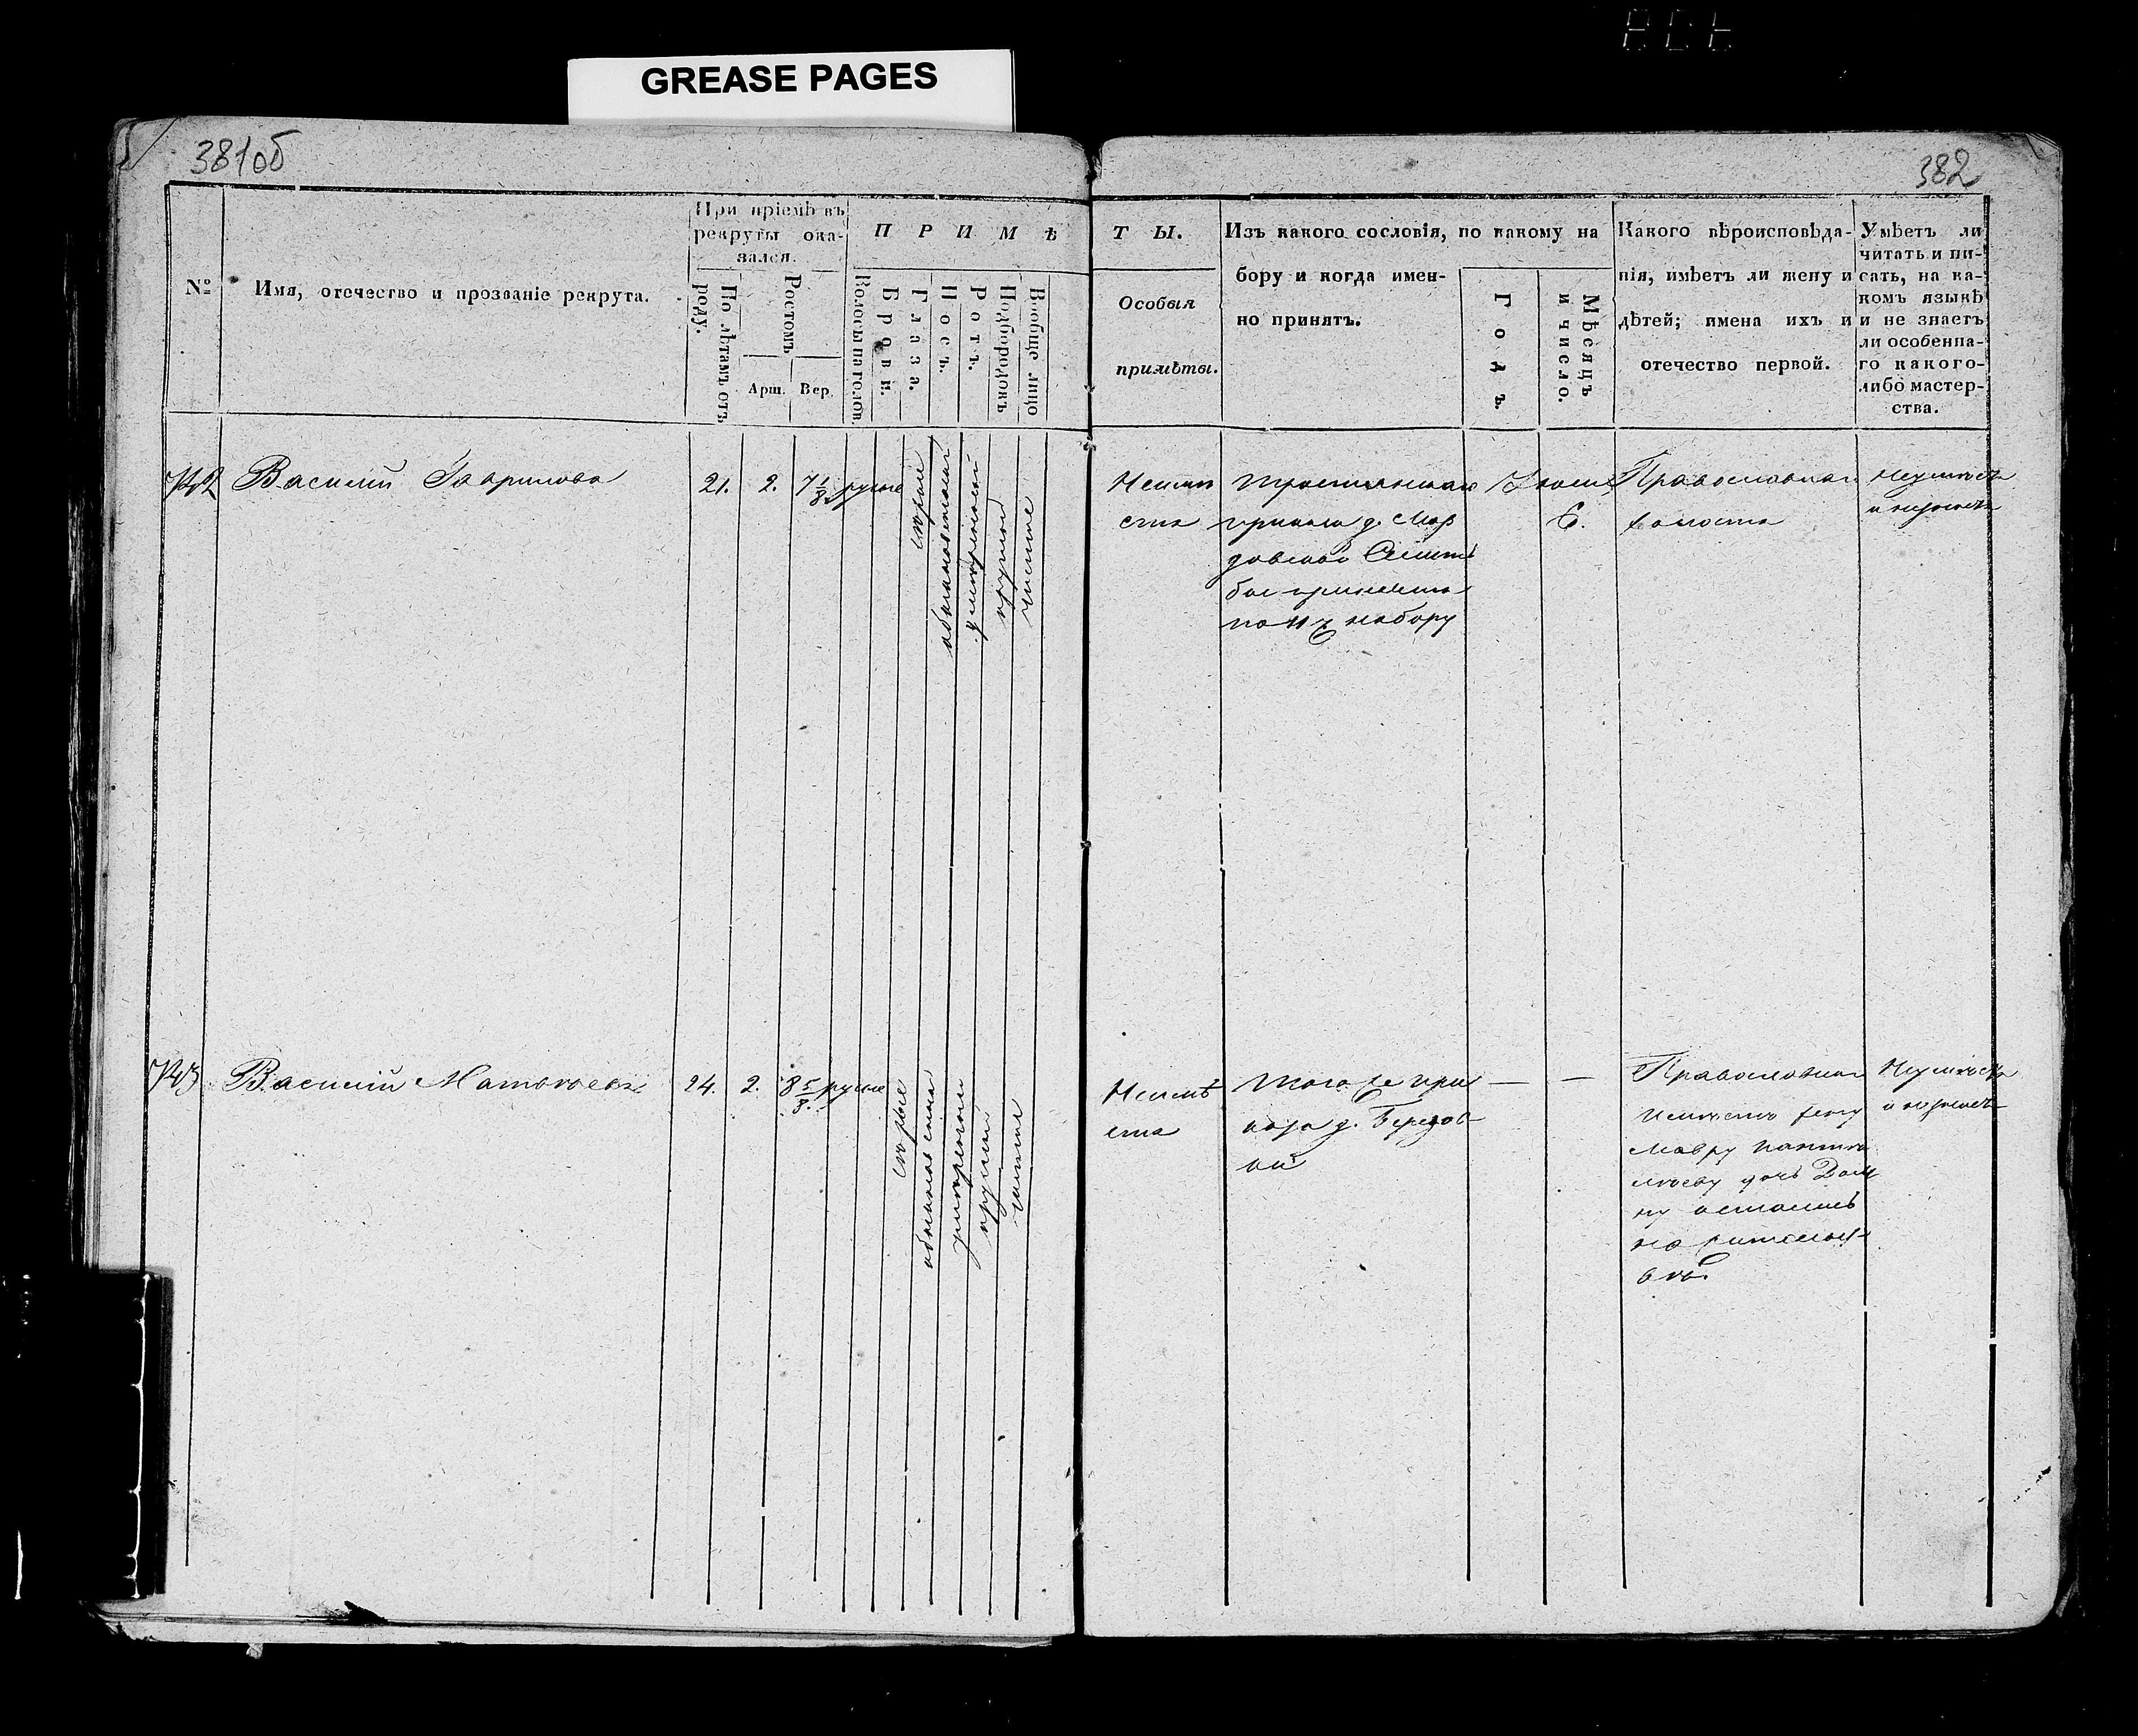 GREASE PAGES
381об
382
№
Имя, отечество и прозваніе рекрута.
При пріемѣ въ
рекруты ока-
зался.
По лѣтамъ отъ
роду.
Ростомъ
Арш.
Вер.
ПРИМѢ
Волосы на головѣ
Брови.
Глаза.
Носъ.
Ротъ.
Подбородокъ
Вообще лицо
ТЫ.
Особыя
примѣты.
Изъ какого сословія, по какому на
бору и когда имен-
но принятъ.
Годъ.
Мѣсяцъ
и число.
Какого вѣроисповѣда-
нія, имѣетъ ли жену и
дѣтей; имена ихъ и
отечество первой.
Умѣетъ ли
читать и пи-
сать, на ка-
комъ языкѣ
и не знаетъ
ли особенна-
го какого-
либо мастер-
ства.
Василій Гаврилова
21.
2.
7 1/8
русые
сѣрые
обыкновенной
умѣренной
круглой
чистое
Неимѣ
приказа д.
по 11 набору
Іюня
6.
Православнаго
холостъ
Неумѣетъ
и незнаетъ
Василій Матвѣевъ
24.
2.
8 5/8.
русые
сѣрые
обыкновенной
умѣренной
круглой
чистое
Неимѣ
етъ
Того же при
каза д. Березов
ки
—
—
Православнаго
имѣетъ жену
Мавру
дочь Дом
ну остались
на жительст
вѣ.
Неумѣетъ
и незнаетъ